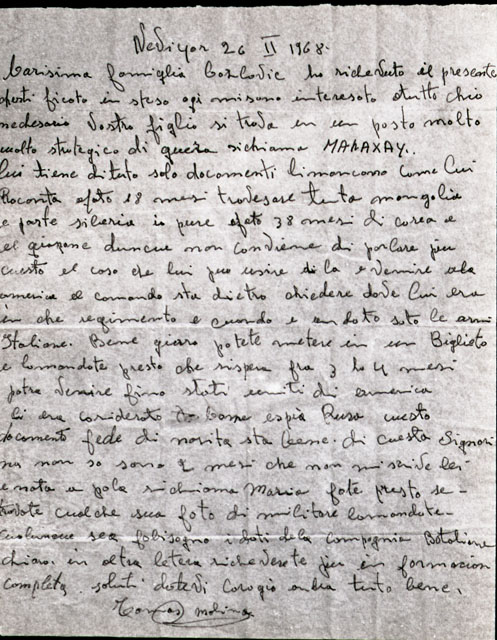 Nediyor 26 II 1968.
Carisima famiglia Cozlodic ho richeduto il presente
ficoto in steso ogi misono interesoto tutt chio
nedesario Vostro figlio si troda in un posto molto
molto strategico di guera sichiama MARAXAY.
lui tiene di tuto solo documenti limancono come lui
Raconta efato 18 mesi trodesare tuta mongolia
e parte siberia io pure efoto 38 mesi di corea e
el quazone duncue non condiene di porlare piu
cuesto el caso che lui puo usire di la e vennire ala
america el comando sta dietro chiedere dode lui era
in che regimento e cuando e andoto soto le armi
Italiane. Bene giaro potete metere in un Biglieto
e lomandote presto che sispera fra 3 lo 4 mesi
potra venire fino stati uniti di america
li era consideroto come espia Rusa cuesto
documento fede di novita sta bene. di cuesta Signori
na non so sono 2 mesi che non mi scride lei
e nata a pola sichiama Maria fote presto se-
trodote cualche sua foto di militare lomandote-
cualuncue sea fabisogno i dati dela Compagnia Botolione
chiaro. in altra letera richederete piu in formacion
completa. soluti detedi corogio andra tuto bene.
Tomas molina